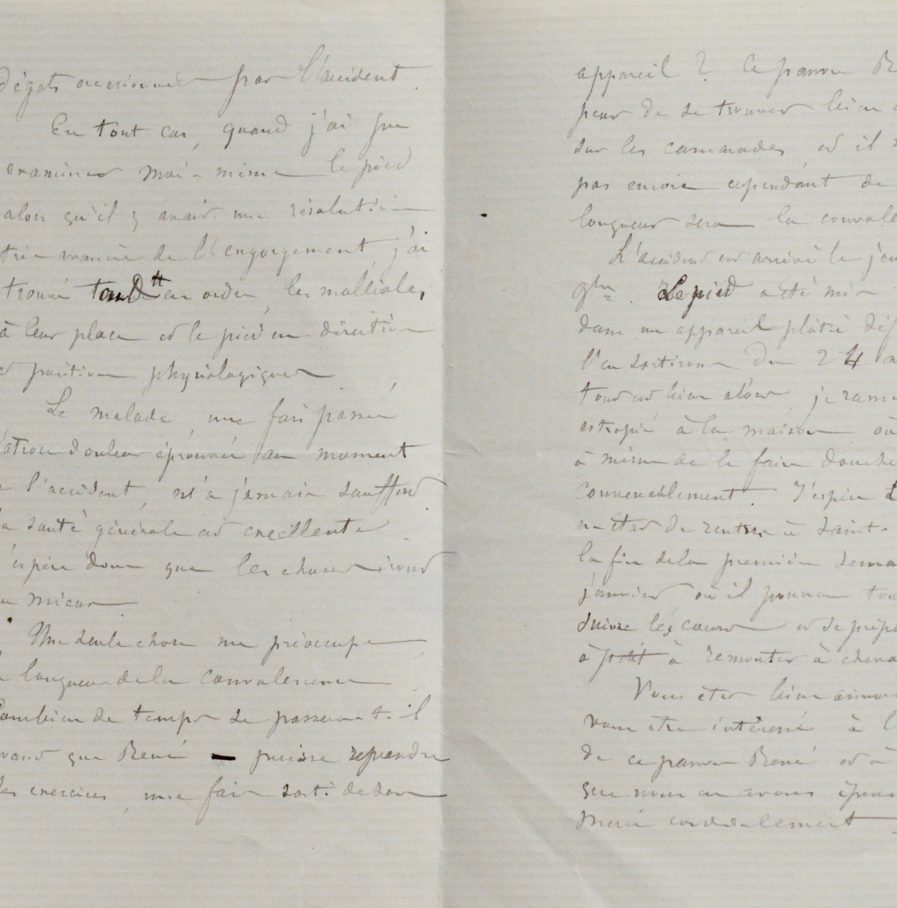 dégats occasionnés par l'accident.
En tout cas, quand j'ai pu
examiner moi-même le pied
alors qu'il y avait une résolution
de l'engorgement, j'ai
trouvé tout en ordre, les malléoles
à leur place et le pied en direction
et position physiologiques
Le malade, une fois passée
l'atroce douleur éprouvée au moment
de l'accident, n'a jamais souffert
sa santé générale est excellente
J'espère donc que les choses iront
au mieux
Une seule chose me préoccupe
la longueur de la convalescence
Combien de temps se passera-t-il
avant que René — puisse reprendre
les exercices, une fois sorti de son
appareil ? Ce pauvre Re
peur de se trouver bien
sur les camarades et il
pas encore cependant de
longueur sera la convale
L'accident est arrivé le jeu
Le pied a été mis
dans un appareil plâtré
l'en sortirons du 24
tout est bien alors je ram
estropié à la maison où
à même de le faire douche
convenablement. J'espère
en état de rentrer à Saint-
la fin de la première sema
janvier où il pourra
suivre les cours et se prép
à petit à remonter à cheva
Vous êtes bien aima
vous être intéressé à l
de ce pauvre René et à
que nous en avons épro
Merci cordialement